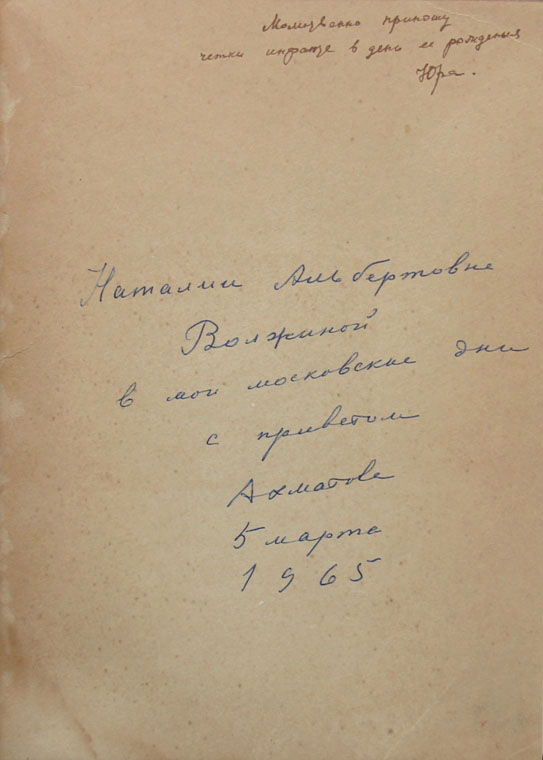 Молитвенно приношу
четки инфанте в день ее рождения
Юра.
Наталии Альбертовне
Волжиной
в мои московские дни
с приветом
Ахматова
5 марта
1965